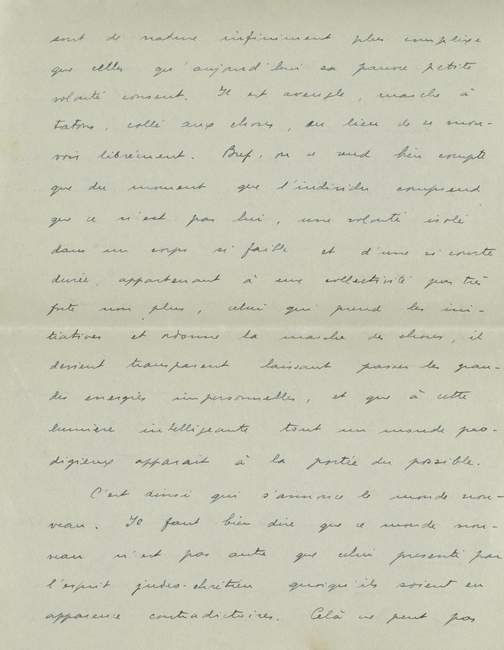 sont de nature infiniment plus complexe
que celles qu'aujourd'hui sa pauvre petite
volonté consent. Il est aveugle, marche à
tatons, collé aux choses, au lieu de se mou-
voir librement. Bref, on se rend bien compte
que du moment que l'individu comprend
que ce n'est pas lui, une volonté isolé
dans un corps si faible et d'une si courte
durée, appartenant à une collectivité pas très
forte non plus, celui qui prend les ini-
tiatives et ordonne la marche des choses, il
devient transparent laissant passer les gran-
des energies impersonnelles, et que à cette
lumière intelligeante tout un monde pro-
digieux apparait à la portée du possible.
C'est ainsi qui s'annonce le monde nou-
veau. Il faut bien dire que ce monde nou-
veau n'est pas autre que celui presenté par
l'esprit judeo-chrétien quoiqu'ils soient en
apparence contradictoires. Celà ne peut pas